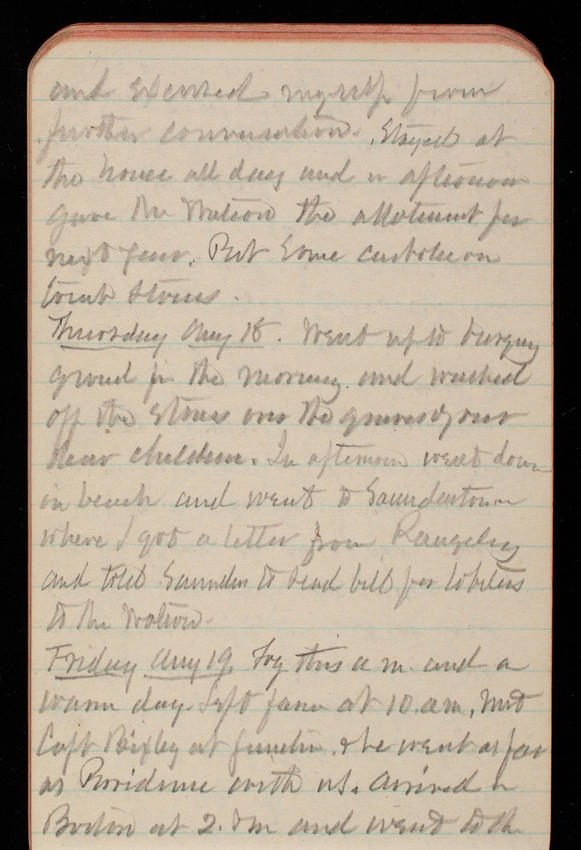 and excused myself from
further conversation. Stayed at
the house all day and in afternoon
gave Mr Watson the allotment for
next year. Put some carbolic on
tomb stones.
Thursday Aug 18. Went up to burying
ground in the morning and washed
off the stones over the graves of our
dear children. In afternoon went down
on beach and went to Saunderstown
where I got a letter from Rangeley
and told Saunders to send bill for lobsters
to Mr Watson.
Friday Aug 19. Fog this a m. and a
warm day. Left farm at 10 a.m, met
Capt Bixley at junction. & he went as far
as Providence with us. Arrived in
Boston at 2. P.m and went to the